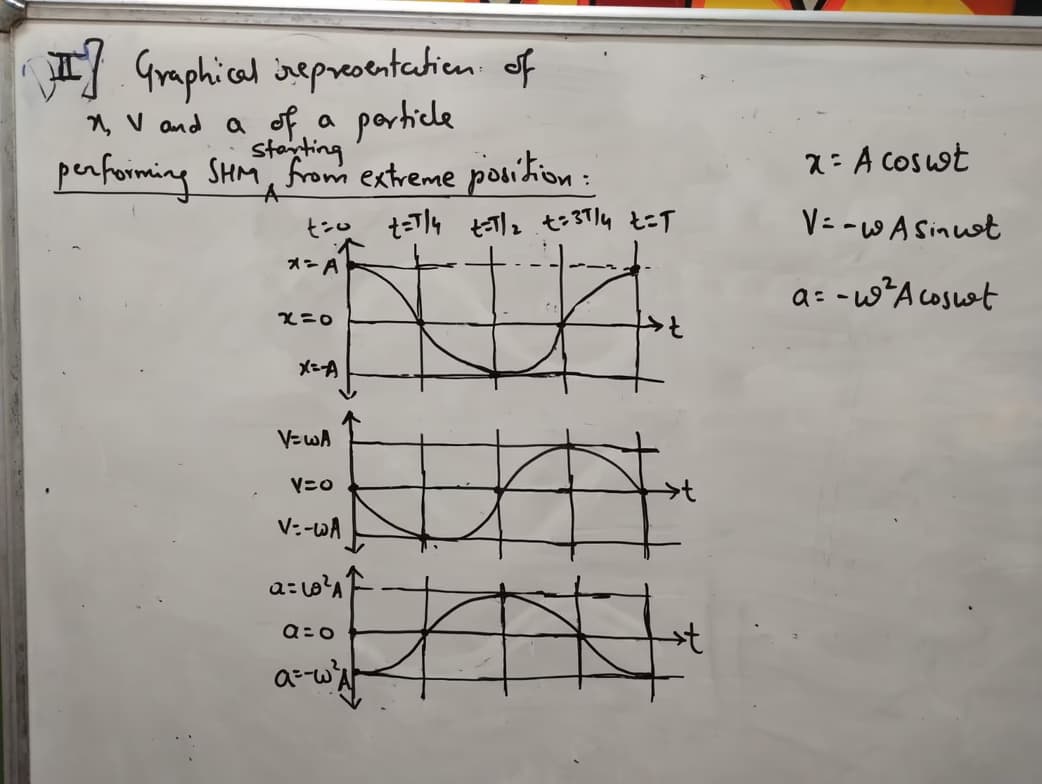 II] Graphical representation of
x, v and a of a particle
performing SHM starting from extreme position :
x = A cosωt
V = -ωA sinωt
a = -ω²A cosωt
t=0 t=T/4 t=T/2 t=3T/4 t=T
x=A
x=0
t
x=-A
V=ωA
V=0
t
V=-ωA
a=ω²A
a=0
t
a=-ω²A